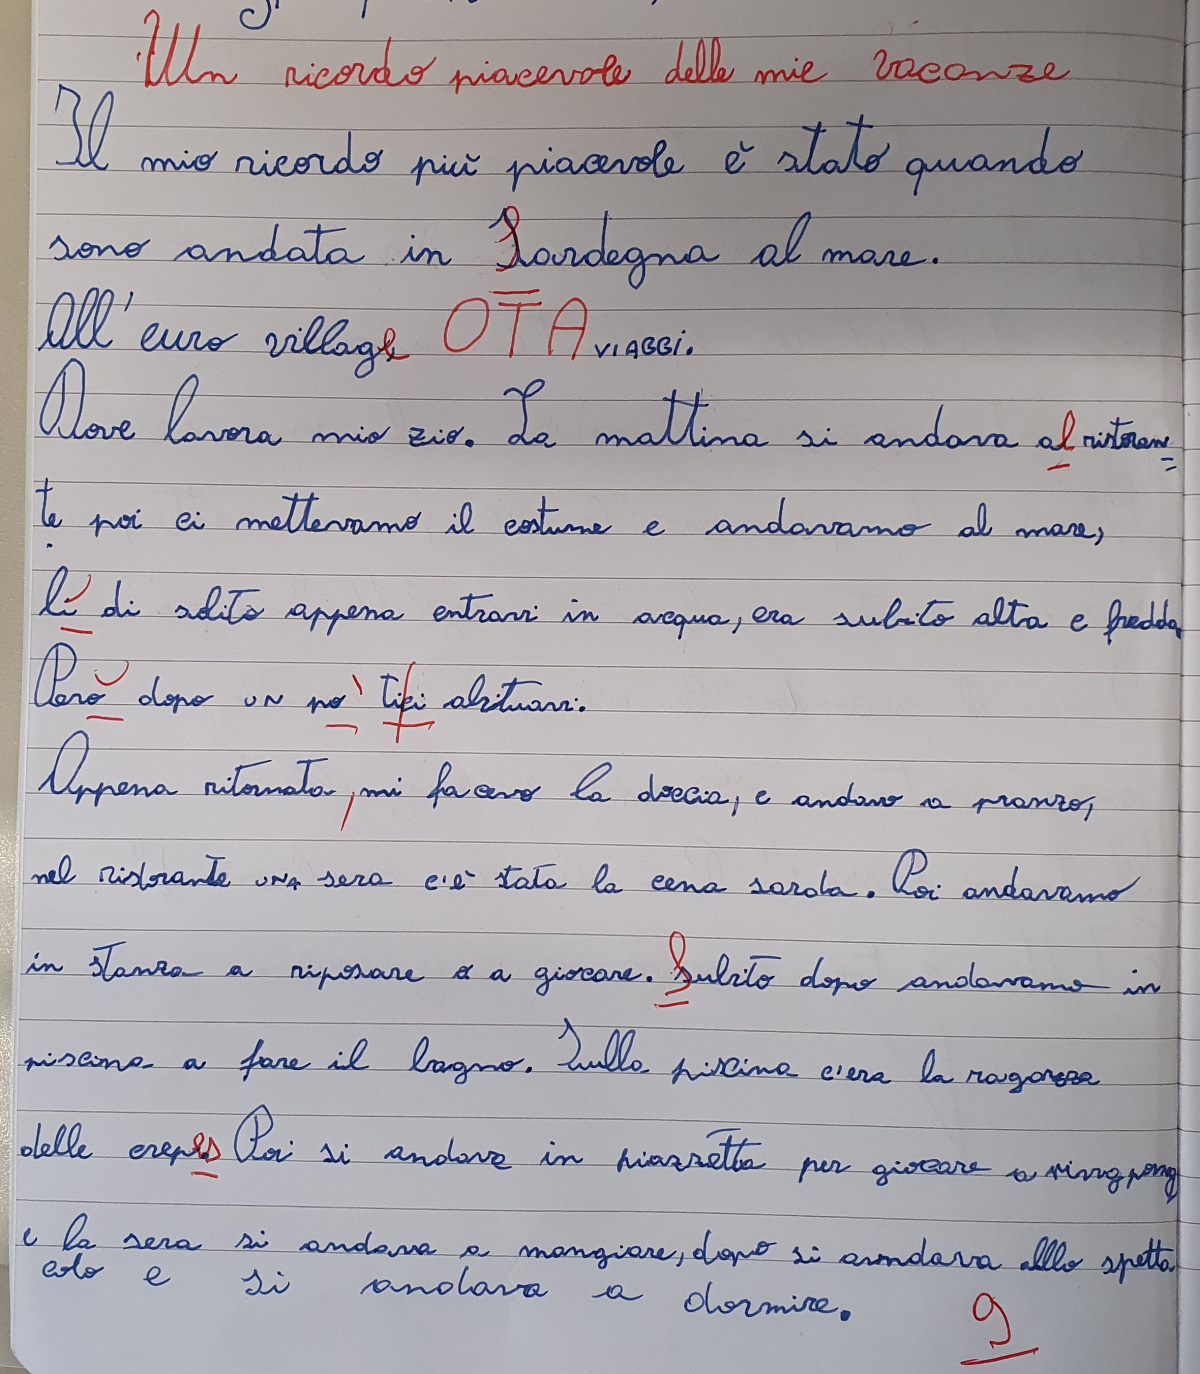 Un ricordo piacevole delle mie vacanze
Il mio ricordo più piacevole è stato quando
sono andata in Sardegna al mare.
All'euro village OTA VIAGGI.
Dove lavora mio zio. La mattina si andava al ristoran=
te poi ci mettevamo il costume e andavamo al mare,
lì di solito appena entravi in acqua, era subito alta e fredda
Però dopo un po' ti abituavi.
Appena ritornata, mi facevo la doccia, e andavo a pranzo,
nel ristorante una sera c'è stata la cena sarda. Poi andavamo
in stanza a riposare e a giocare. Subito dopo andavamo in
piscina a fare il bagno. Sulla piscina c'era la ragazza
delle crepes Poi si andava in piazzetta per giocare a pingpong
e la sera si andava a mangiare, dopo si andava allo spetta
colo e si andava a dormire.
9